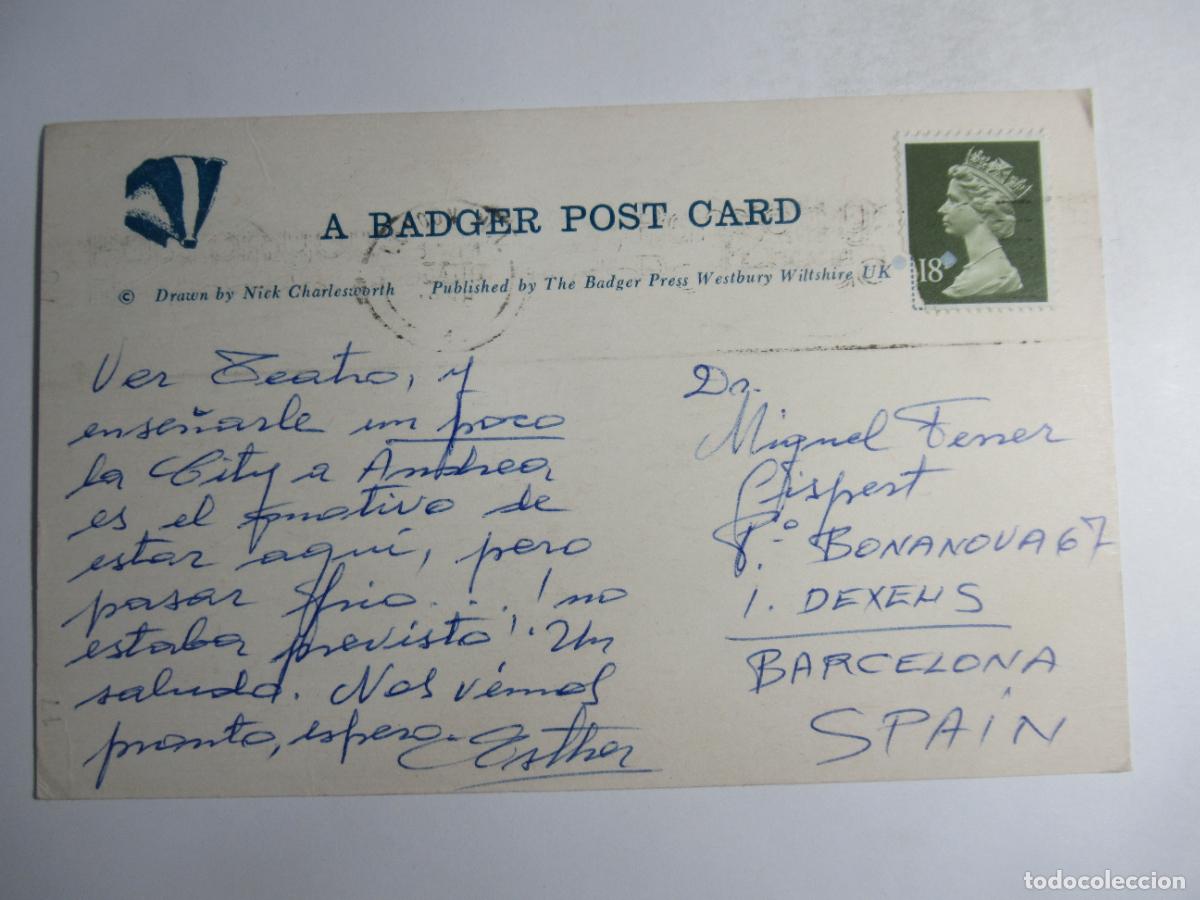 A BADGER POST CARD
© Drawn by Nick Charlesworth Published by The Badger Press Westbury Wiltshire UK
18P
Ver Teatro, y
enseñarle un poco
la City a Andrea
es el motivo de
estar aquí, pero
pasar frio... ! no
estaba previsto!. Un
saludo. Nos vémos
pronto, espero.
Esther
Dr.
Miguel Ferrer
Gispert
Pº BONANOVA 67
I. DEXEUS
BARCELONA
SPAIN
todocoleccion